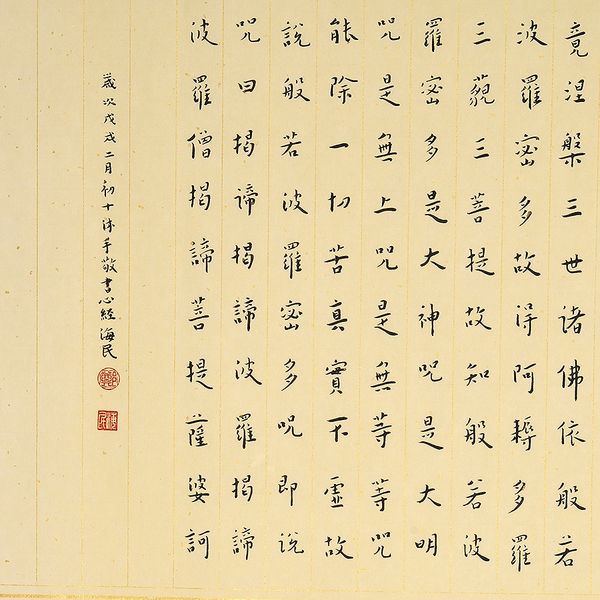 竟涅槃三世諸佛依般若
波羅密多故得阿耨多羅
三藐三菩提故知般若波
羅密多是大神咒是大明
咒是無上咒是無等等咒
能除一切苦真實不虛故
說般若波羅密多咒即說
咒曰揭諦揭諦波羅揭諦
波羅僧揭諦菩提薩婆訶
歲次戊戌二月初十沐手敬書心經海民